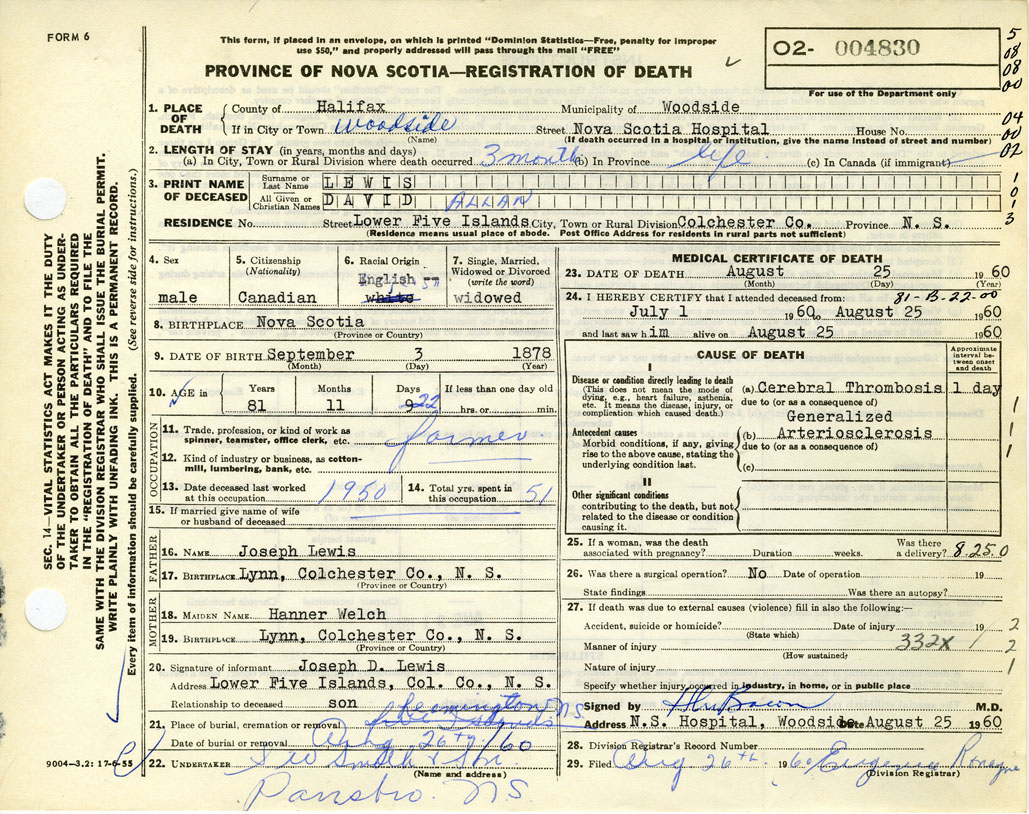 FORM 6
This form, if placed in an envelope, on which is printed "Dominion Statistics—Free, penalty for improper
use $50," and properly addressed will pass through the mail "FREE"
PROVINCE OF NOVA SCOTIA—REGISTRATION OF DEATH
O2- 004830
For use of the Department only
5
08
08
00
04
00
02
1
0
1
3
1. PLACE OF DEATH
County of Halifax Municipality of Woodside
If in City or Town Woodside Street Nova Scotia Hospital House No.
(Name) (If death occurred in a hospital or institution, give the name instead of street and number)
2. LENGTH OF STAY (in years, months and days)
(a) In City, Town or Rural Division where death occurred 3 month (b) In Province life (c) In Canada (if immigrant)
3. PRINT NAME OF DECEASED
Surname or Last Name LEWIS
All Given or Christian Names DAVID ALLAN
RESIDENCE No. Street Lower Five Islands City, Town or Rural Division Colchester Co. Province N. S.
(Residence means usual place of abode. Post Office Address for residents in rural parts not sufficient)
4. Sex
male
5. Citizenship
(Nationality)
Canadian
6. Racial Origin
English --
white
7. Single, Married,
Widowed or Divorced
(write the word)
widowed
8. BIRTHPLACE Nova Scotia
(Province or Country)
9. DATE OF BIRTH September 3 1878
(Month) (Day) (Year)
10. AGE in
Years Months Days If less than one day old
81 11 22 hrs. or min.
OCCUPATION
11. Trade, profession, or kind of work as
spinner, teamster, office clerk, etc. farmer
12. Kind of industry or business, as cotton-
mill, lumbering, bank, etc.
13. Date deceased last worked
at this occupation 1950
14. Total yrs. spent in
this occupation 51
15. If married give name of wife
or husband of deceased
FATHER
16. NAME Joseph Lewis
17. BIRTHPLACE Lynn, Colchester Co., N. S.
(Province or Country)
MOTHER
18. MAIDEN NAME Hanner Welch
19. BIRTHPLACE Lynn, Colchester Co., N. S.
(Province or Country)
20. Signature of informant Joseph D. Lewis
Address Lower Five Islands, Col. Co., N. S.
Relationship to deceased son
21. Place of burial, cremation or removal N.S.
Date of burial or removal Aug 26th /60
22. UNDERTAKER Smith & Son
(Name and address)
N.S.
MEDICAL CERTIFICATE OF DEATH
23. DATE OF DEATH August 25 1960
(Month) (Day) (Year)
24. I HEREBY CERTIFY that I attended deceased from: 81-B-22-00
July 1 1960 to August 25 1960
and last saw him alive on August 25 1960
CAUSE OF DEATH
Approximate interval between onset and death
I
Disease or condition directly leading to death
(This does not mean the mode of
dying, e.g., heart failure, asthenia,
etc. It means the disease, injury, or
complication which caused death.)
(a) Cerebral Thrombosis 1 day
due to (or as a consequence of)
Generalized
Antecedent causes
Morbid conditions, if any, giving
rise to the above cause, stating the
underlying condition last.
(b) Arteriosclerosis
due to (or as a consequence of)
(c)
1
1
1
1
II
Other significant conditions
contributing to the death, but not
related to the disease or condition
causing it.
25. If a woman, was the death
associated with pregnancy? Duration weeks. Was there
a delivery? 8.25.0
26. Was there a surgical operation? No Date of operation 19
State findings Was there an autopsy?
27. If death was due to external causes (violence) fill in also the following:—
Accident, suicide or homicide? Date of injury 19
(State which)
2
Manner of injury 332X
(How sustained)
2
Nature of injury
1
Specify whether injury occurred in industry, in home, or in public place
Signed by M.D.
Address N.S. Hospital, Woodside Date August 25 1960
28. Division Registrar's Record Number
29. Filed Aug 26th 1960
(Division Registrar)
SEC. 14—VITAL STATISTICS ACT MAKES IT THE DUTY
OF THE UNDERTAKER OR PERSON ACTING AS UNDER-
TAKER TO OBTAIN ALL THE PARTICULARS REQUIRED
IN THE "REGISTRATION OF DEATH" AND TO FILE THE
SAME WITH THE DIVISION REGISTRAR WHO SHALL ISSUE THE BURIAL PERMIT.
WRITE PLAINLY WITH UNFADING INK. THIS IS A PERMANENT RECORD.
Every item of information should be carefully supplied. (See reverse side for instructions.)
9004—3.2: 17-6-55